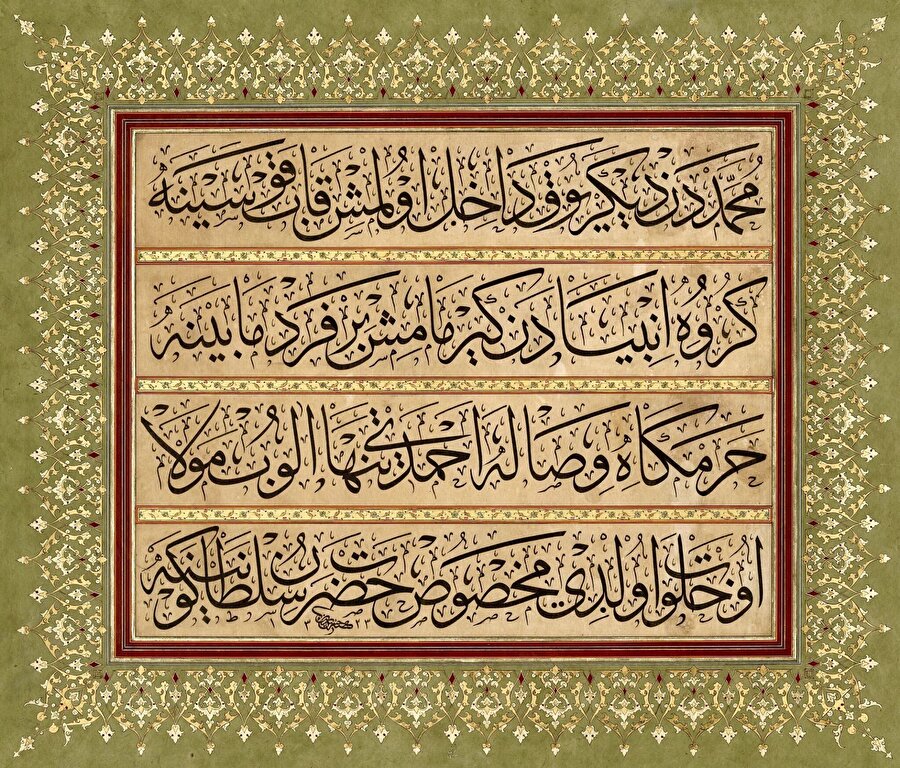 محمّددن دیگر یوق داخل اولمش قاب قوسینه
گروه انبیادن گیرمامش بر فرد مابینه
حرمگاه وصاله احمدی تنها الوب مولا
او خلوت اولدی مخصوص حضرت سلطان کونینه